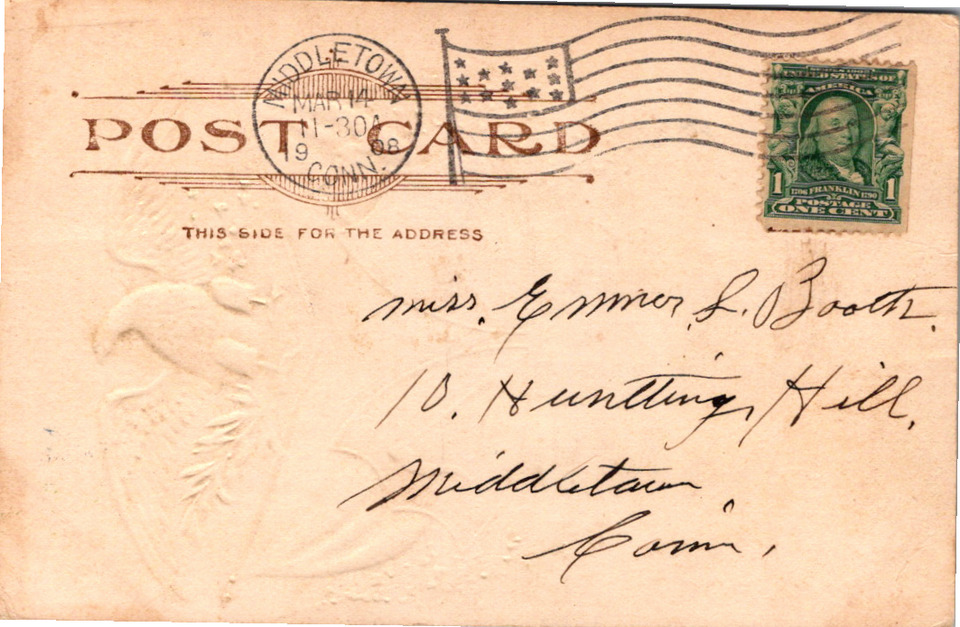 MIDDLETOWN
MAR 14
11-30A
1908
CONN.
POST CARD
THIS SIDE FOR THE ADDRESS
SERIES 1902
UNITED STATES OF
AMERICA
1 1706 FRANKLIN 1790 1
POSTAGE
ONE CENT
Miss. Emmer L. Booth.
10. Huntting Hill,
Middletown,
Conn.,